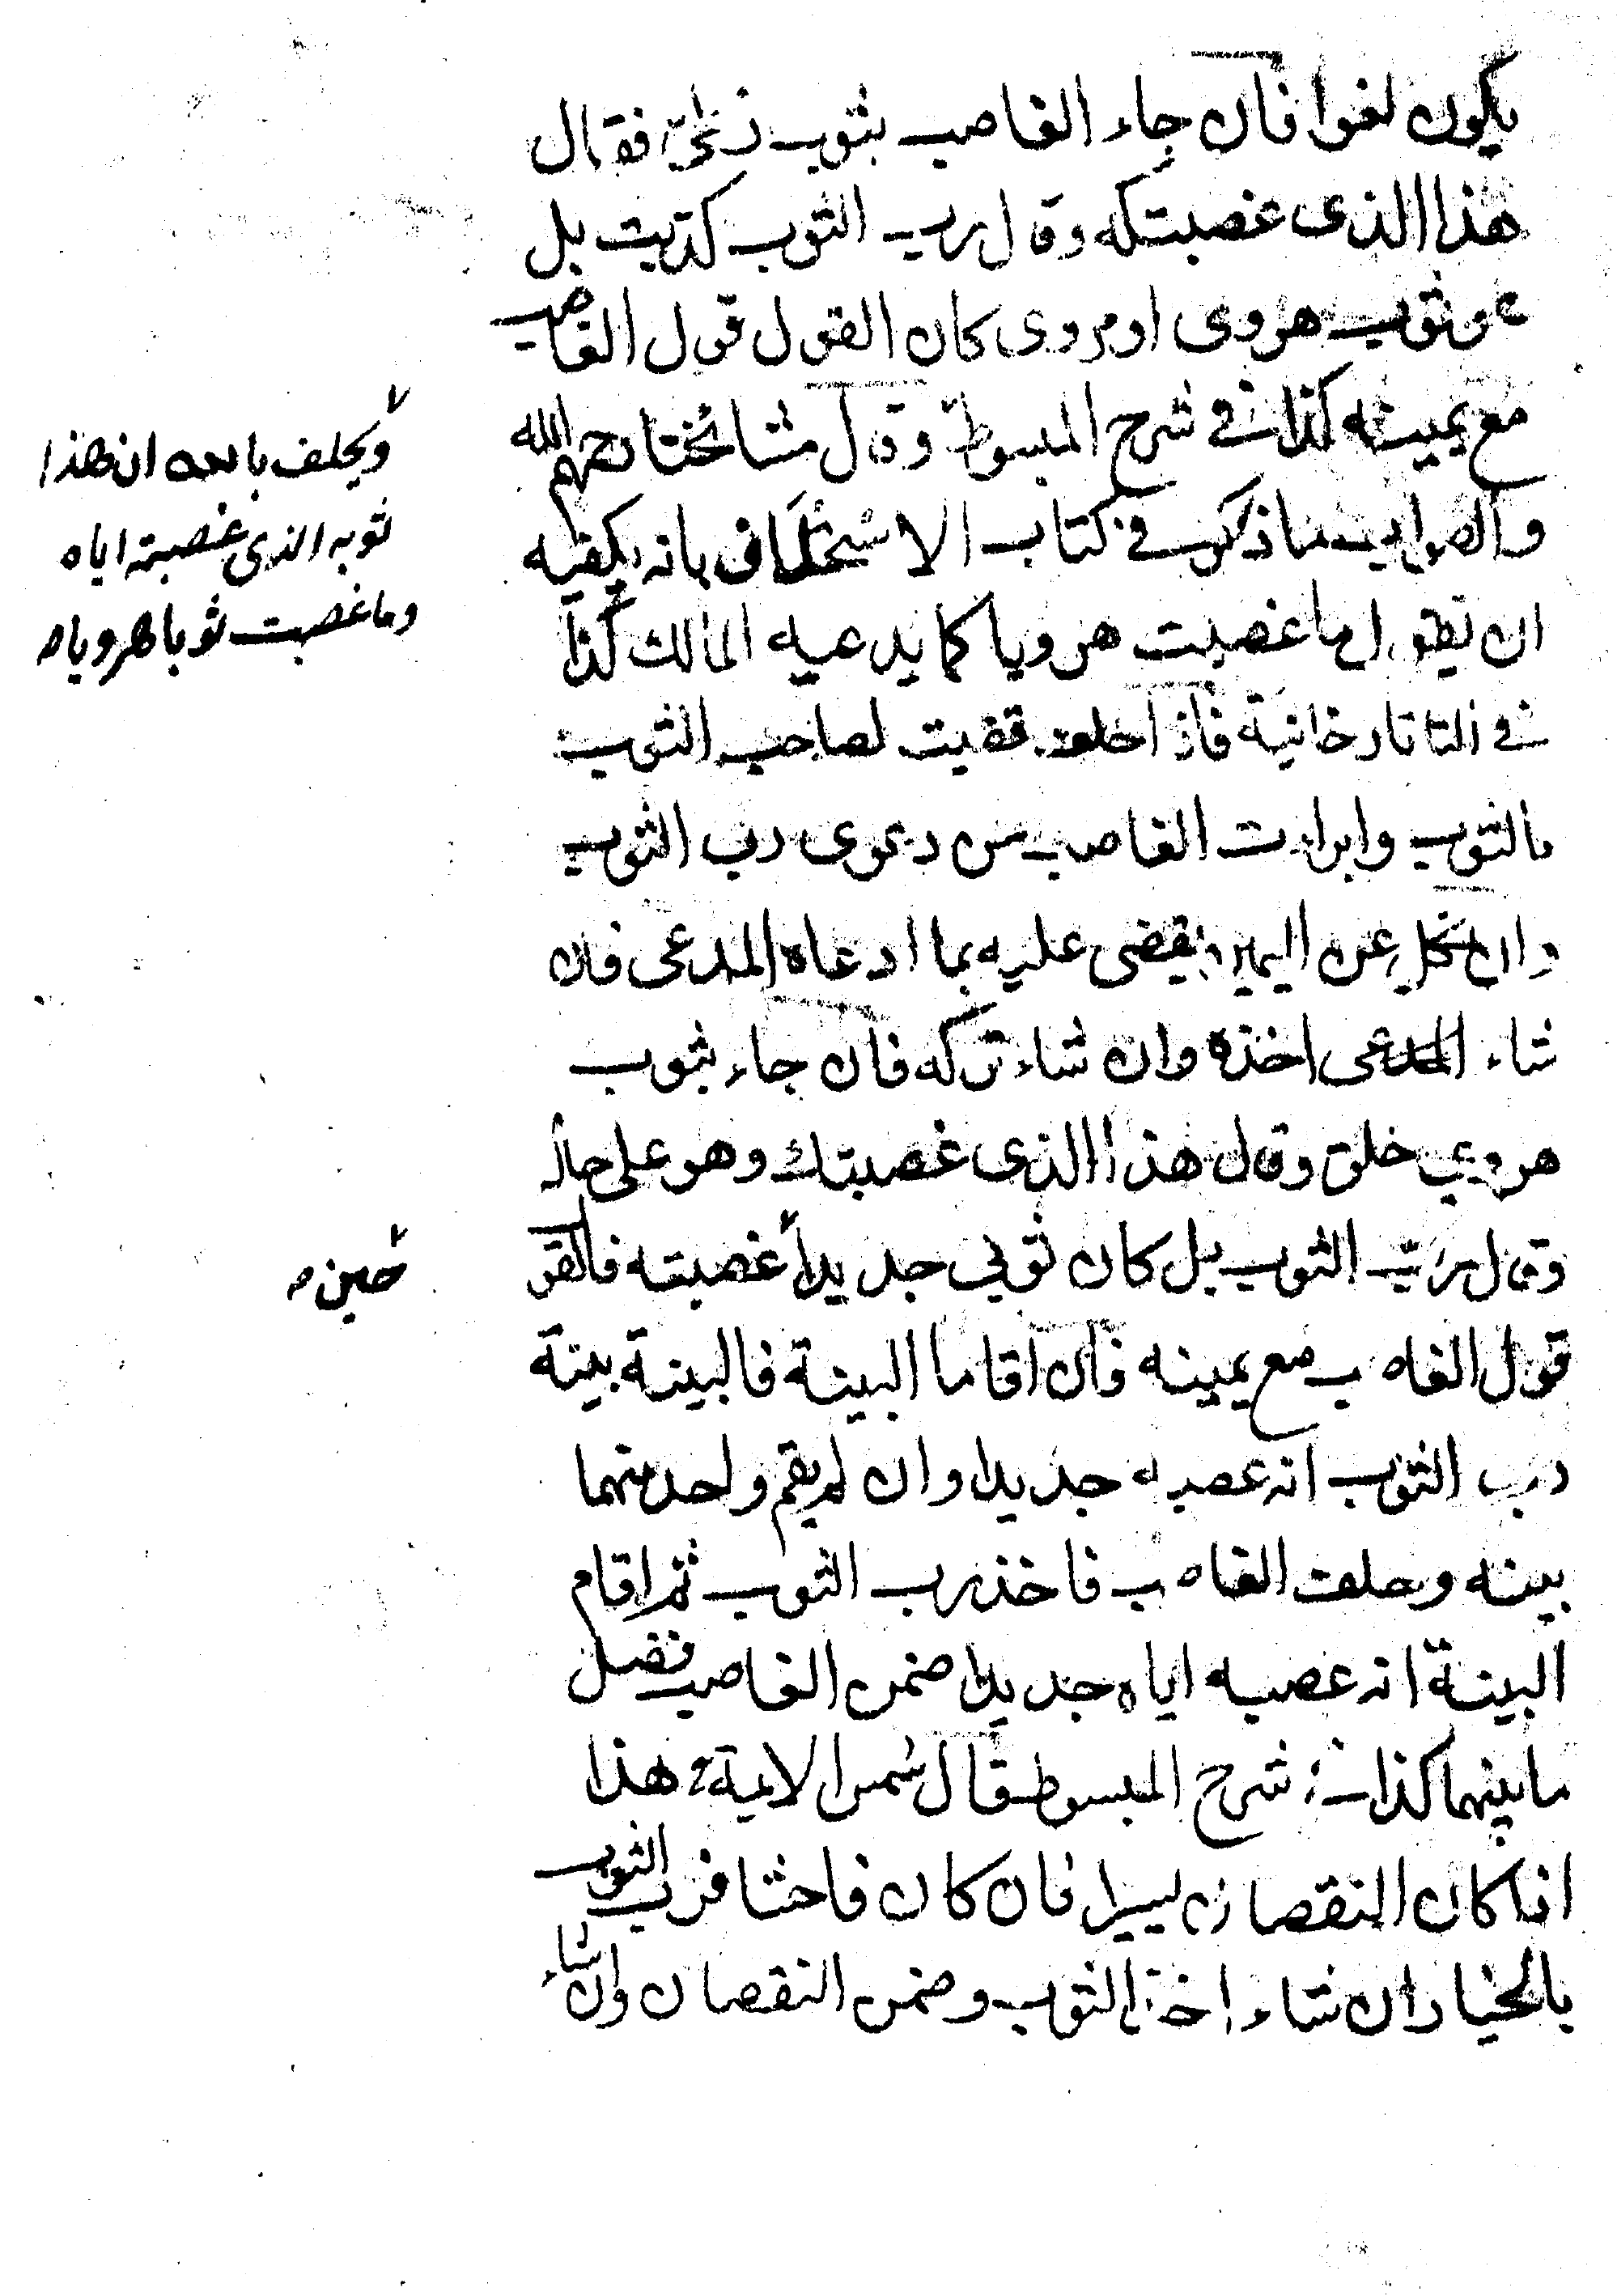 يكون لغوا فان جاء الغاصب بثوب زطي فقال
هذا الذى غصبتكه وقال رب الثوب كذبت بل
هو ثوب هروى او مروى كان القول قول الغاصب
مع يمينه كذا في شرح المبسوط وقال مشائخنا رحمهم الله
والصواب ما ذكر في كتاب الاستحلاف بانه يكفيه
ان يقول ما غصبت هرويا كما يدعيه المالك كذا
في التاتارخانية فاذا حلف قضيت لصاحب الثوب
بالثوب وابرات الغاصب من دعوى رب الثوب
وان نكل عن اليمين يقضى عليه بما ادعاه المدعى فان
شاء المدعى اخذه وان شاء تركه فان جاء بثوب
هروي خلق وقال هذا الذى غصبتك وهو على حاله
وقال رب الثوب بل كان ثوبي جديدا غصبته فالقول
قول الغاصب مع يمينه فان اقاما البينة فالبينة بينة
رب الثوب انه غصبه جديدا وان لم يقم واحد منهما
بينه وحلف الغاصب فاخذ رب الثوب ثم اقام
البينة انه غصبه اياه جديدا ضمن الغاصب فضل
ما بينهما كذا في شرح المبسوط قال شمس الايمة هذا
اذا كان النقصان يسيرا فان كان فاحشا فرب الثوب
بالخيار ان شاء اخذ الثوب وضمن النقصان وان شاء
ويحلف بالله ان هذا
ثوبه الذى غصبته اياه
وما غصبت ثوبا هرويا صح
حين صح